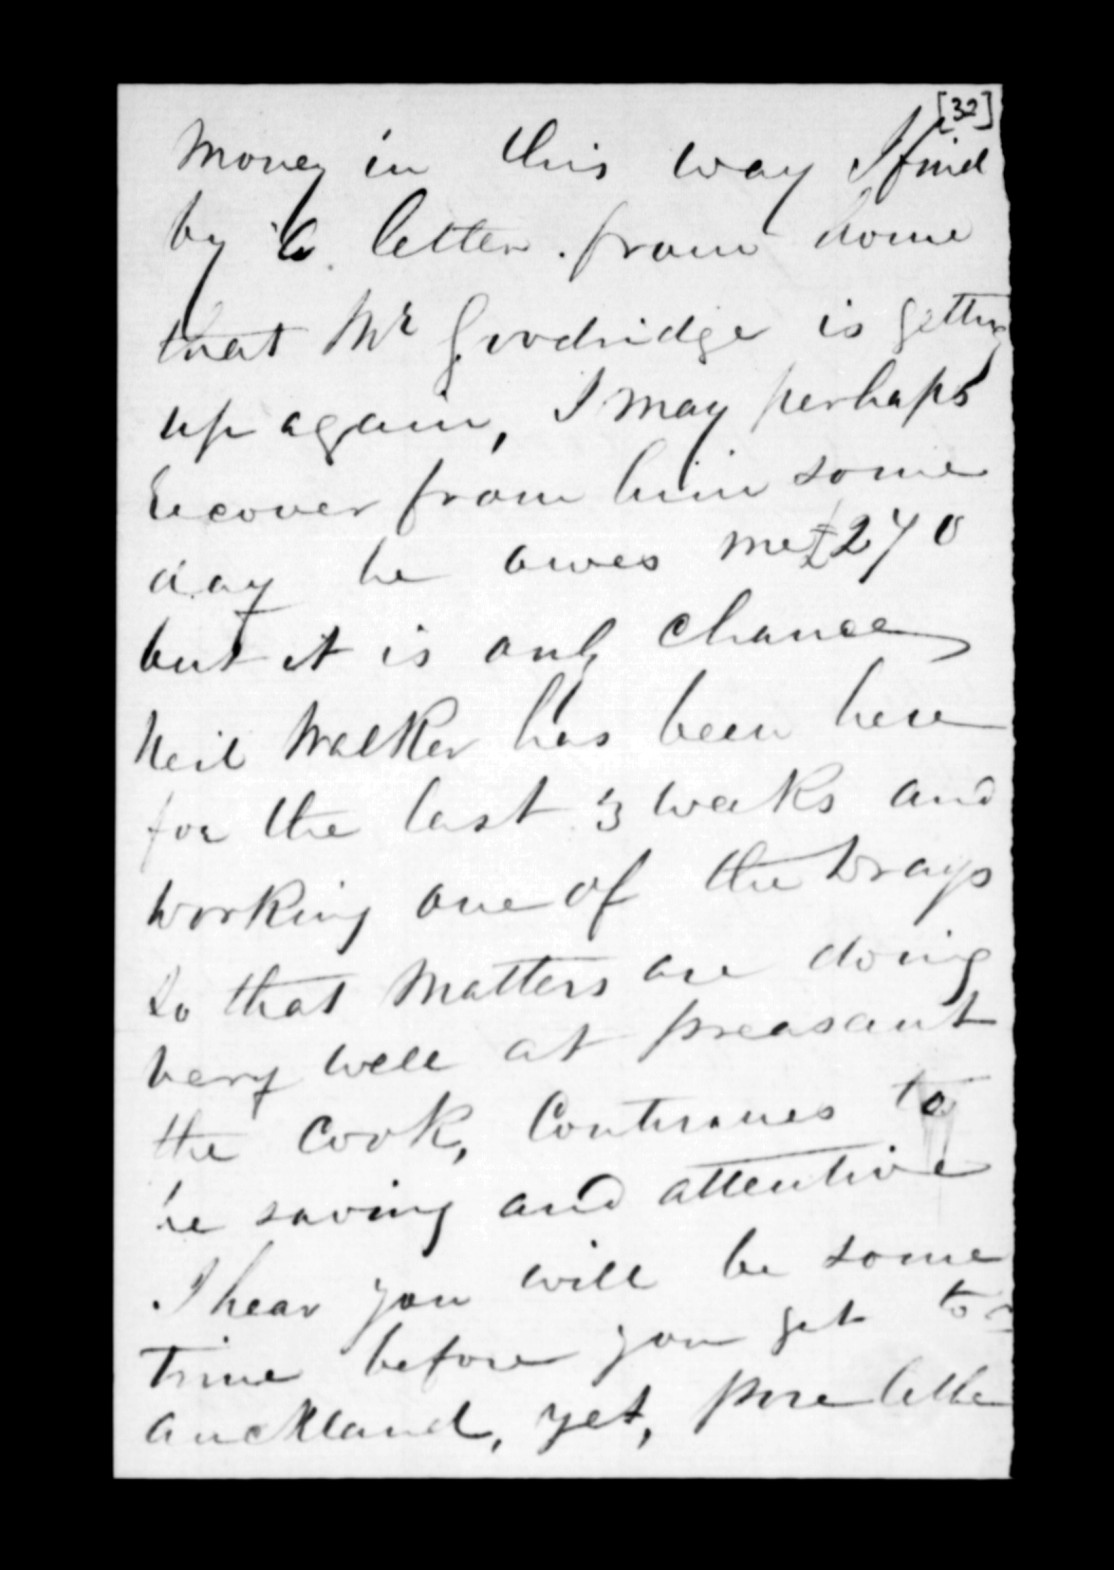 [32]
Money in this way I find
by a letter from home
that Mr Goodridge is getting
up again, I may perhaps
recover from him some
day he owes me £270
but it is only chance
Neil Walker has been here
for the last 3 weeks and
working one of the Drays
so that Matters are doing
very well at preasant
the Cook, Continues to
be saving and attentive
I hear you will be some
time before you get to
auckland, yet, pore little